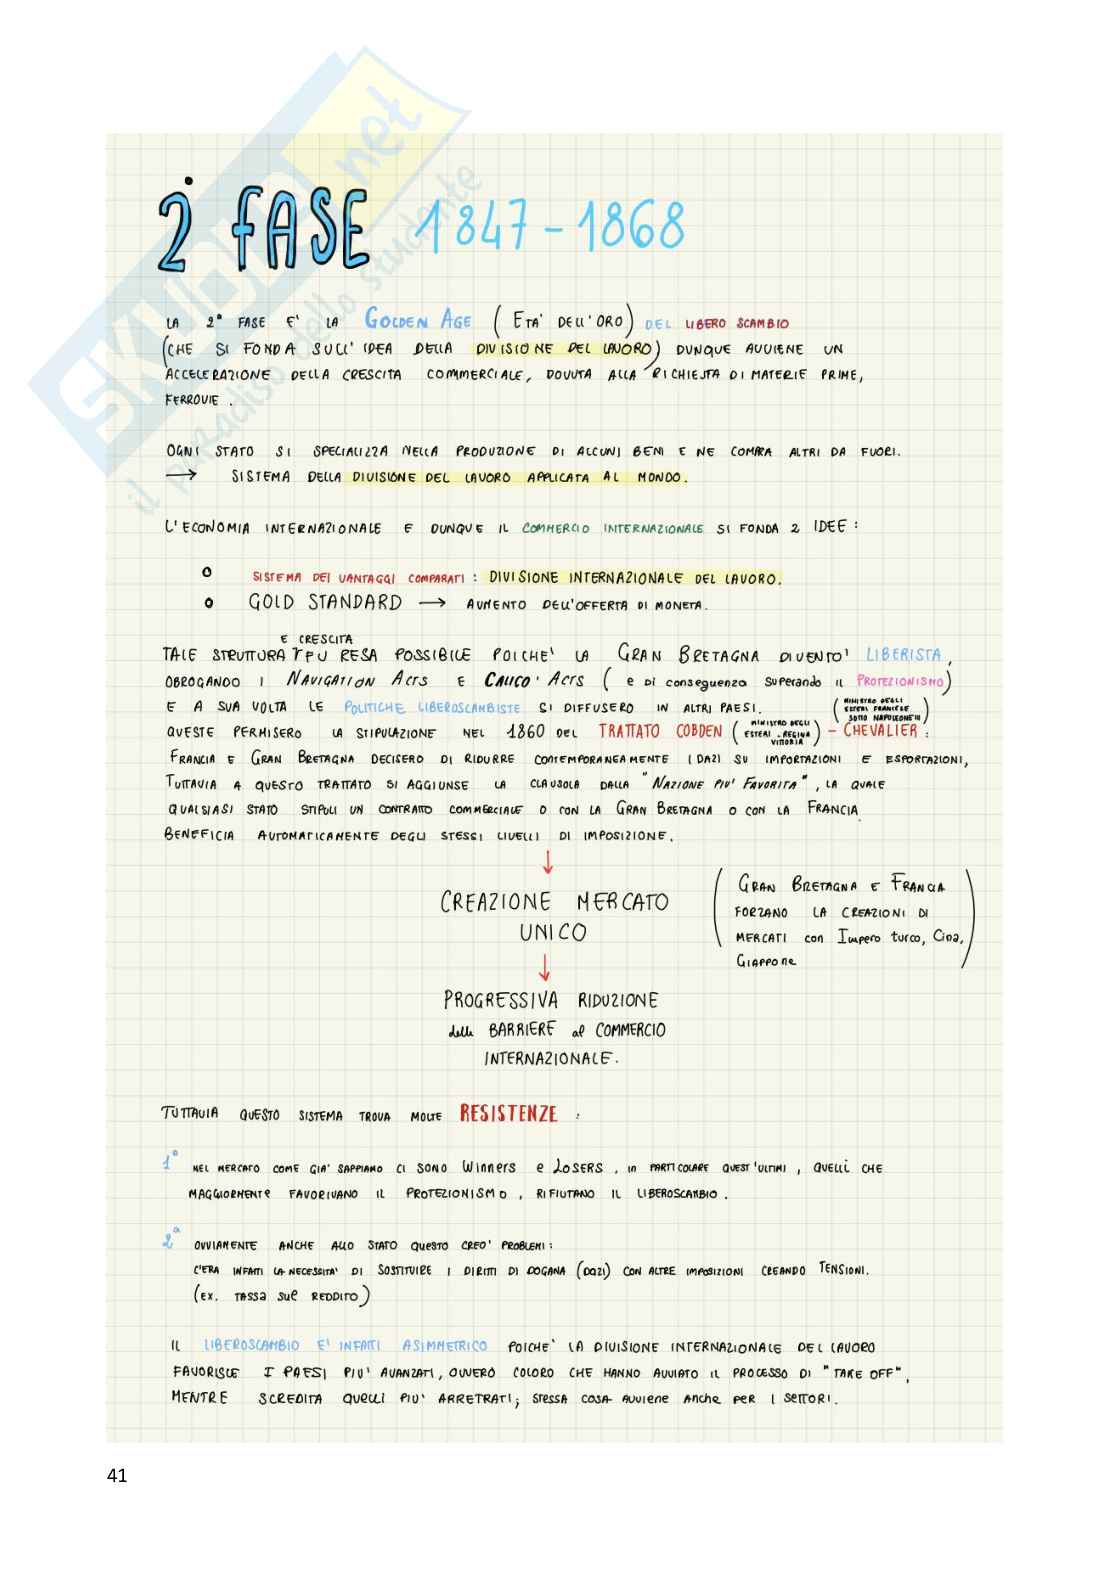 SKUOLA.net
il paradiso dello studente
2ª FASE 1847-1868
LA 2ª FASE E' LA GOLDEN AGE (ETA' DELL'ORO) DEL LIBERO SCAMBIO
(CHE SI FONDA SULL'IDEA DELLA DIVISIONE DEL LAVORO) DUNQUE AVVIENE UN
ACCELERAZIONE DELLA CRESCITA COMMERCIALE, DOVUTA ALLA RICHIESTA DI MATERIE PRIME,
FERROVIE.
OGNI STATO SI SPECIALIZZA NELLA PRODUZIONE DI ALCUNI BENI E NE COMPRA ALTRI DA FUORI.
→ SISTEMA DELLA DIVISIONE DEL LAVORO APPLICATA AL MONDO.
L'ECONOMIA INTERNAZIONALE E DUNQUE IL COMMERCIO INTERNAZIONALE SI FONDA 2 IDEE:
SISTEMA DEI VANTAGGI COMPARATI: DIVISIONE INTERNAZIONALE DEL LAVORO.
GOLD STANDARD → AUMENTO DELL'OFFERTA DI MONETA.
E CRESCITA
TALE STRUTTURA FU RESA POSSIBILE POICHE' LA GRAN BRETAGNA DIVENTO' LIBERISTA,
OBROGANDO I NAVIGATION ACTS E CALICO' ACTS (e di conseguenza superando il PROTEZIONISMO)
E A SUA VOLTA LE POLITICHE LIBEROSCAMBISTE SI DIFFUSERO IN ALTRI PAESI. (MINISTRO DEGLI ESTERI FRANCESE SOTTO NAPOLEONE III)
QUESTE PERMISERO LA STIPULAZIONE NEL 1860 DEL TRATTATO COBDEN (MINISTRO DEGLI ESTERI - REGINA VITTORIA) - CHEVALIER:
FRANCIA E GRAN BRETAGNA DECISERO DI RIDURRE CONTEMPORANEAMENTE I DAZI SU IMPORTAZIONI E ESPORTAZIONI,
TUTTAVIA A QUESTO TRATTATO SI AGGIUNSE LA CLAUSOLA DALLA "NAZIONE PIU' FAVORITA", LA QUALE
QUALSIASI STATO STIPULI UN CONTRATTO COMMERCIALE O CON LA GRAN BRETAGNA O CON LA FRANCIA
BENEFICIA AUTOMATICAMENTE DEGLI STESSI LIVELLI DI IMPOSIZIONE.
↓
CREAZIONE MERCATO
UNICO
(GRAN BRETAGNA E FRANCIA
FORZANO LA CREAZIONI DI
MERCATI con Impero turco, Cina,
GIAPPONE)
↓
PROGRESSIVA RIDUZIONE
delle BARRIERE al COMMERCIO
INTERNAZIONALE.
TUTTAVIA QUESTO SISTEMA TROVA MOLTE RESISTENZE:
1ª NEL MERCATO COME GIA' SAPPIAMO CI SONO Winners e LOSERS, in PARTICOLARE QUEST'ULTIMI, QUELLI CHE
MAGGIORMENTE FAVORIVANO IL PROTEZIONISMO, RIFIUTANO IL LIBEROSCAMBIO.
2ª OVVIAMENTE ANCHE ALLO STATO QUESTO CREO' PROBLEMI:
C'ERA INFATTI LA NECESSITA' DI SOSTITUIRE I DIRITTI DI DOGANA (DAZI) CON ALTRE IMPOSIZIONI CREANDO TENSIONI.
(ex. TASSA SUL REDDITO)
IL LIBEROSCAMBIO E' INFATTI ASIMMETRICO POICHE' LA DIVISIONE INTERNAZIONALE DEL LAVORO
FAVORISCE I PAESI PIU' AVANZATI, OVVERO COLORO CHE HANNO AVVIATO IL PROCESSO DI "TAKE OFF",
MENTRE SCREDITA QUELLI PIU' ARRETRATI; STESSA COSA AVVIENE ANCHE PER I SETTORI.
41